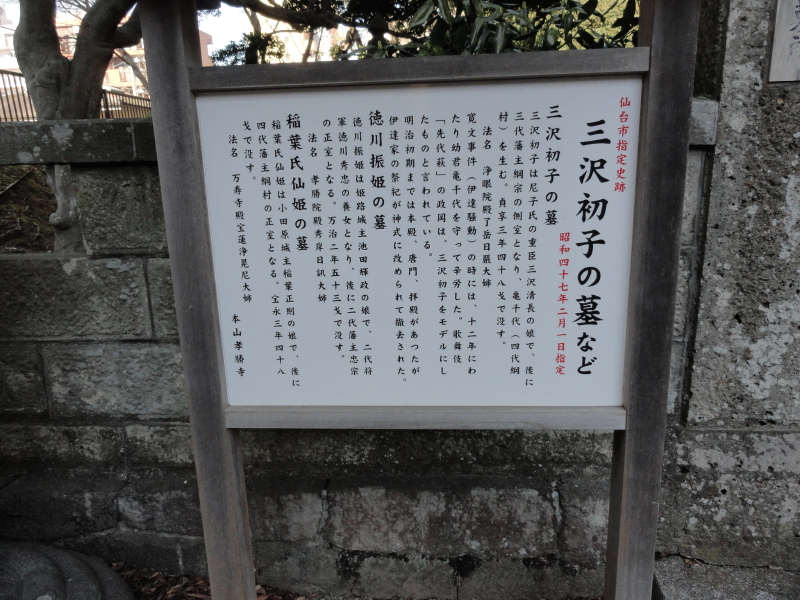 仙台市指定史跡
三沢初子の墓など
昭和四十七年二月一日指定
三沢初子の墓
三沢初子は尼子氏の重臣三沢清長の娘で、後に
三代藩主綱宗の側室となり、亀千代（四代綱
村）を生む。貞享三年四十八才で没す。
法名　浄眼院殿了岳日厳大姉
寛文事件（伊達騒動）の時には、十二年にわ
たり幼君亀千代を守って辛労した。歌舞伎
「先代萩」の政岡は、三沢初子をモデルにし
たものと言われている。
明治初期までは本殿、唐門、拝殿があつたが
伊達家の祭祀が神式に改められて撤去された。
徳川振姫の墓
徳川振姫は姫路城主池田輝政の娘で、二代将
軍徳川秀忠の養女となり、後に二代藩主忠宗
の正室となる。万治二年五十三才で没す。
法名　孝勝院殿秀岸日訊大姉
稲葉氏仙姫の墓
稲葉氏仙姫は小田原城主稲葉正則の娘で、後に
四代藩主綱村の正室となる。宝永三年四十八
才で没す。
法名　万寿寺殿宝蓮浄晃尼大姉
本山孝勝寺